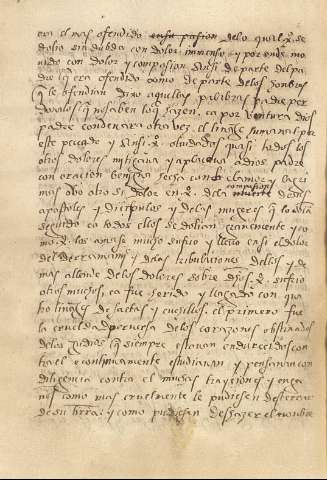 era el mas ofendido en su pasion delo qual x̄. se
dolio sin dubda con dolor immenso y por ende mo
uido con dolor y compasion ansi de parte del pa
dre q̄ era ofendido como de parte delos honbres
q̄ le ofendian dixo aquellas palabras padre per
donalos q̄ no saben lo q̄ hazen, ca por ventura dios
padre condenara otra vez el linage humanal por
este peccado y ansi x̄. oluidados quasi todos los
otros dolores mitigaua y aplacaua a dios padre
con oracion benigna hecha con clamor y lagri
mas ouo otro si dolor en x̄. dela compasion delos
apostoles y discipulos y delas mugeres q̄ lo auiā
seguido ca todos ellos se dolian grauemente y co
mo x̄. los amase mucho sufrio y lleuo casi el dolor
del derramamiento y delas tribulationes dellos y de
mas allende delos dolores sobre dichos x̄. sufrio
otros muchos, ca fue herido y llagado con qua
tro linages de saetas y cuchillos. el primero fue
la crueldad peruersa delos corazones obstinados
delos judios q̄ siempre estauan endurecidos con
tra el e continuamente estudiauan y pensauan con
diligencia contra el muchas trayciones y enga
ños como mas cruelmente le pudiesen desterrar
de su tierra y como pudiesen deshazer el nombre